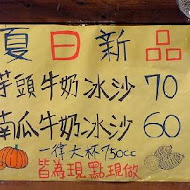 夏日新品
芋頭牛奶冰沙 70
南瓜牛奶冰沙 60
一律大杯750cc
皆為現點現做